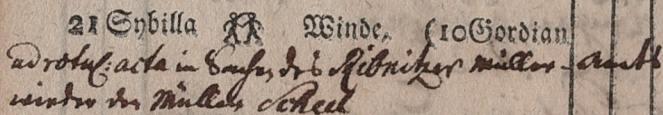 21 Sybilla Winde, (10 Gordian
ad rotul: acta in Sachen des Ribnitzer Müller-Amts
wieder den Müller Scheel